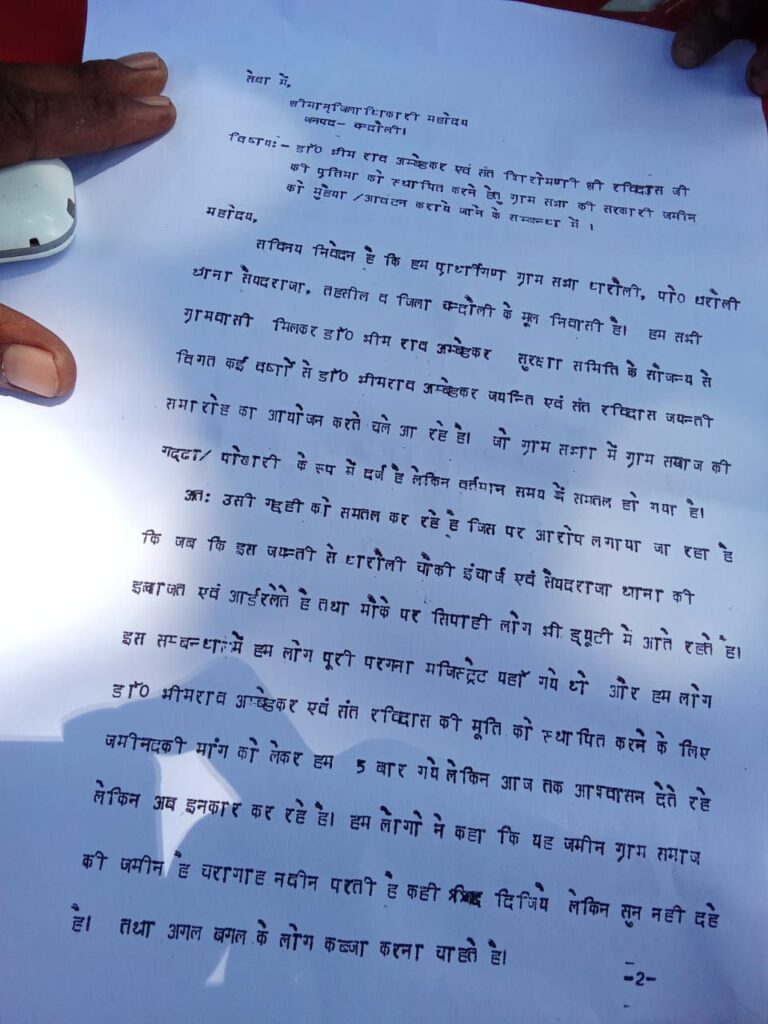 सेवा में,
श्रीमान् जिलाधिकारी महोदय
जनपद- चन्दौली।
विषय:- डॉ० भीम राव अम्बेडकर एवं संत शिरोमणी श्री रविदास जी
की प्रतिमा को स्थापित करने हेतु ग्राम सभा की सरकारी जमीन
को मुहैया /आवंटन कराये जाने के सम्बन्ध में ।
महोदय,
सविनय निवेदन है कि हम प्रार्थीगण ग्राम सभा धरौली, पो० धरौली
थाना सैयदराजा, तहसील व जिला चन्दौली के मूल निवासी है। हम सभी
ग्रामवासी मिलकर डॉ० भीम राव अम्बेडकर सुरक्षा समिति के सौजन्य से
विगत कई वर्षों से डॉ० भीमराव अम्बेडकर जयन्ति एवं संत रविदास जयन्ती
समारोह का आयोजन करते चले आ रहे है। जो ग्राम सभा में ग्राम समाज की
गड्ढा/ पोखारी के रूप में दर्ज है लेकिन वर्तमान समय में समतल हो गया है।
अत: उसी गड़ही को समतल कर रहे है जिस पर आरोप लगाया जा रहा है
कि जब कि इस जयन्ती से धारौली चौकी इंचार्ज एवं सैयदराजा थाना की
इजाजत एवं आर्डरलेते है तथा मौके पर सिपाही लोग भी ड्यूटी में आते रहते है।
इस सम्बन्ध में हम लोग पूरी परगना मजिस्ट्रेट यहाँ गये थे और हम लोग
डॉ० भीमराव अम्बेडकर एवं संत रविदास की मूति को स्थापित करने के लिए
जमीनदकी मांग को लेकर हम 5 बार गये लेकिन आज तक आश्वासन देते रहे
लेकिन अब इनकार कर रहे है। हम लोगो ने कहा कि यह जमीन ग्राम समाज
की जमीन है चरागाह नदीन परती है कही दिजिये लेकिन सुन नही दहे
है। तथा अगल बगल के लोग कब्जा करना चाहते है।
-2-